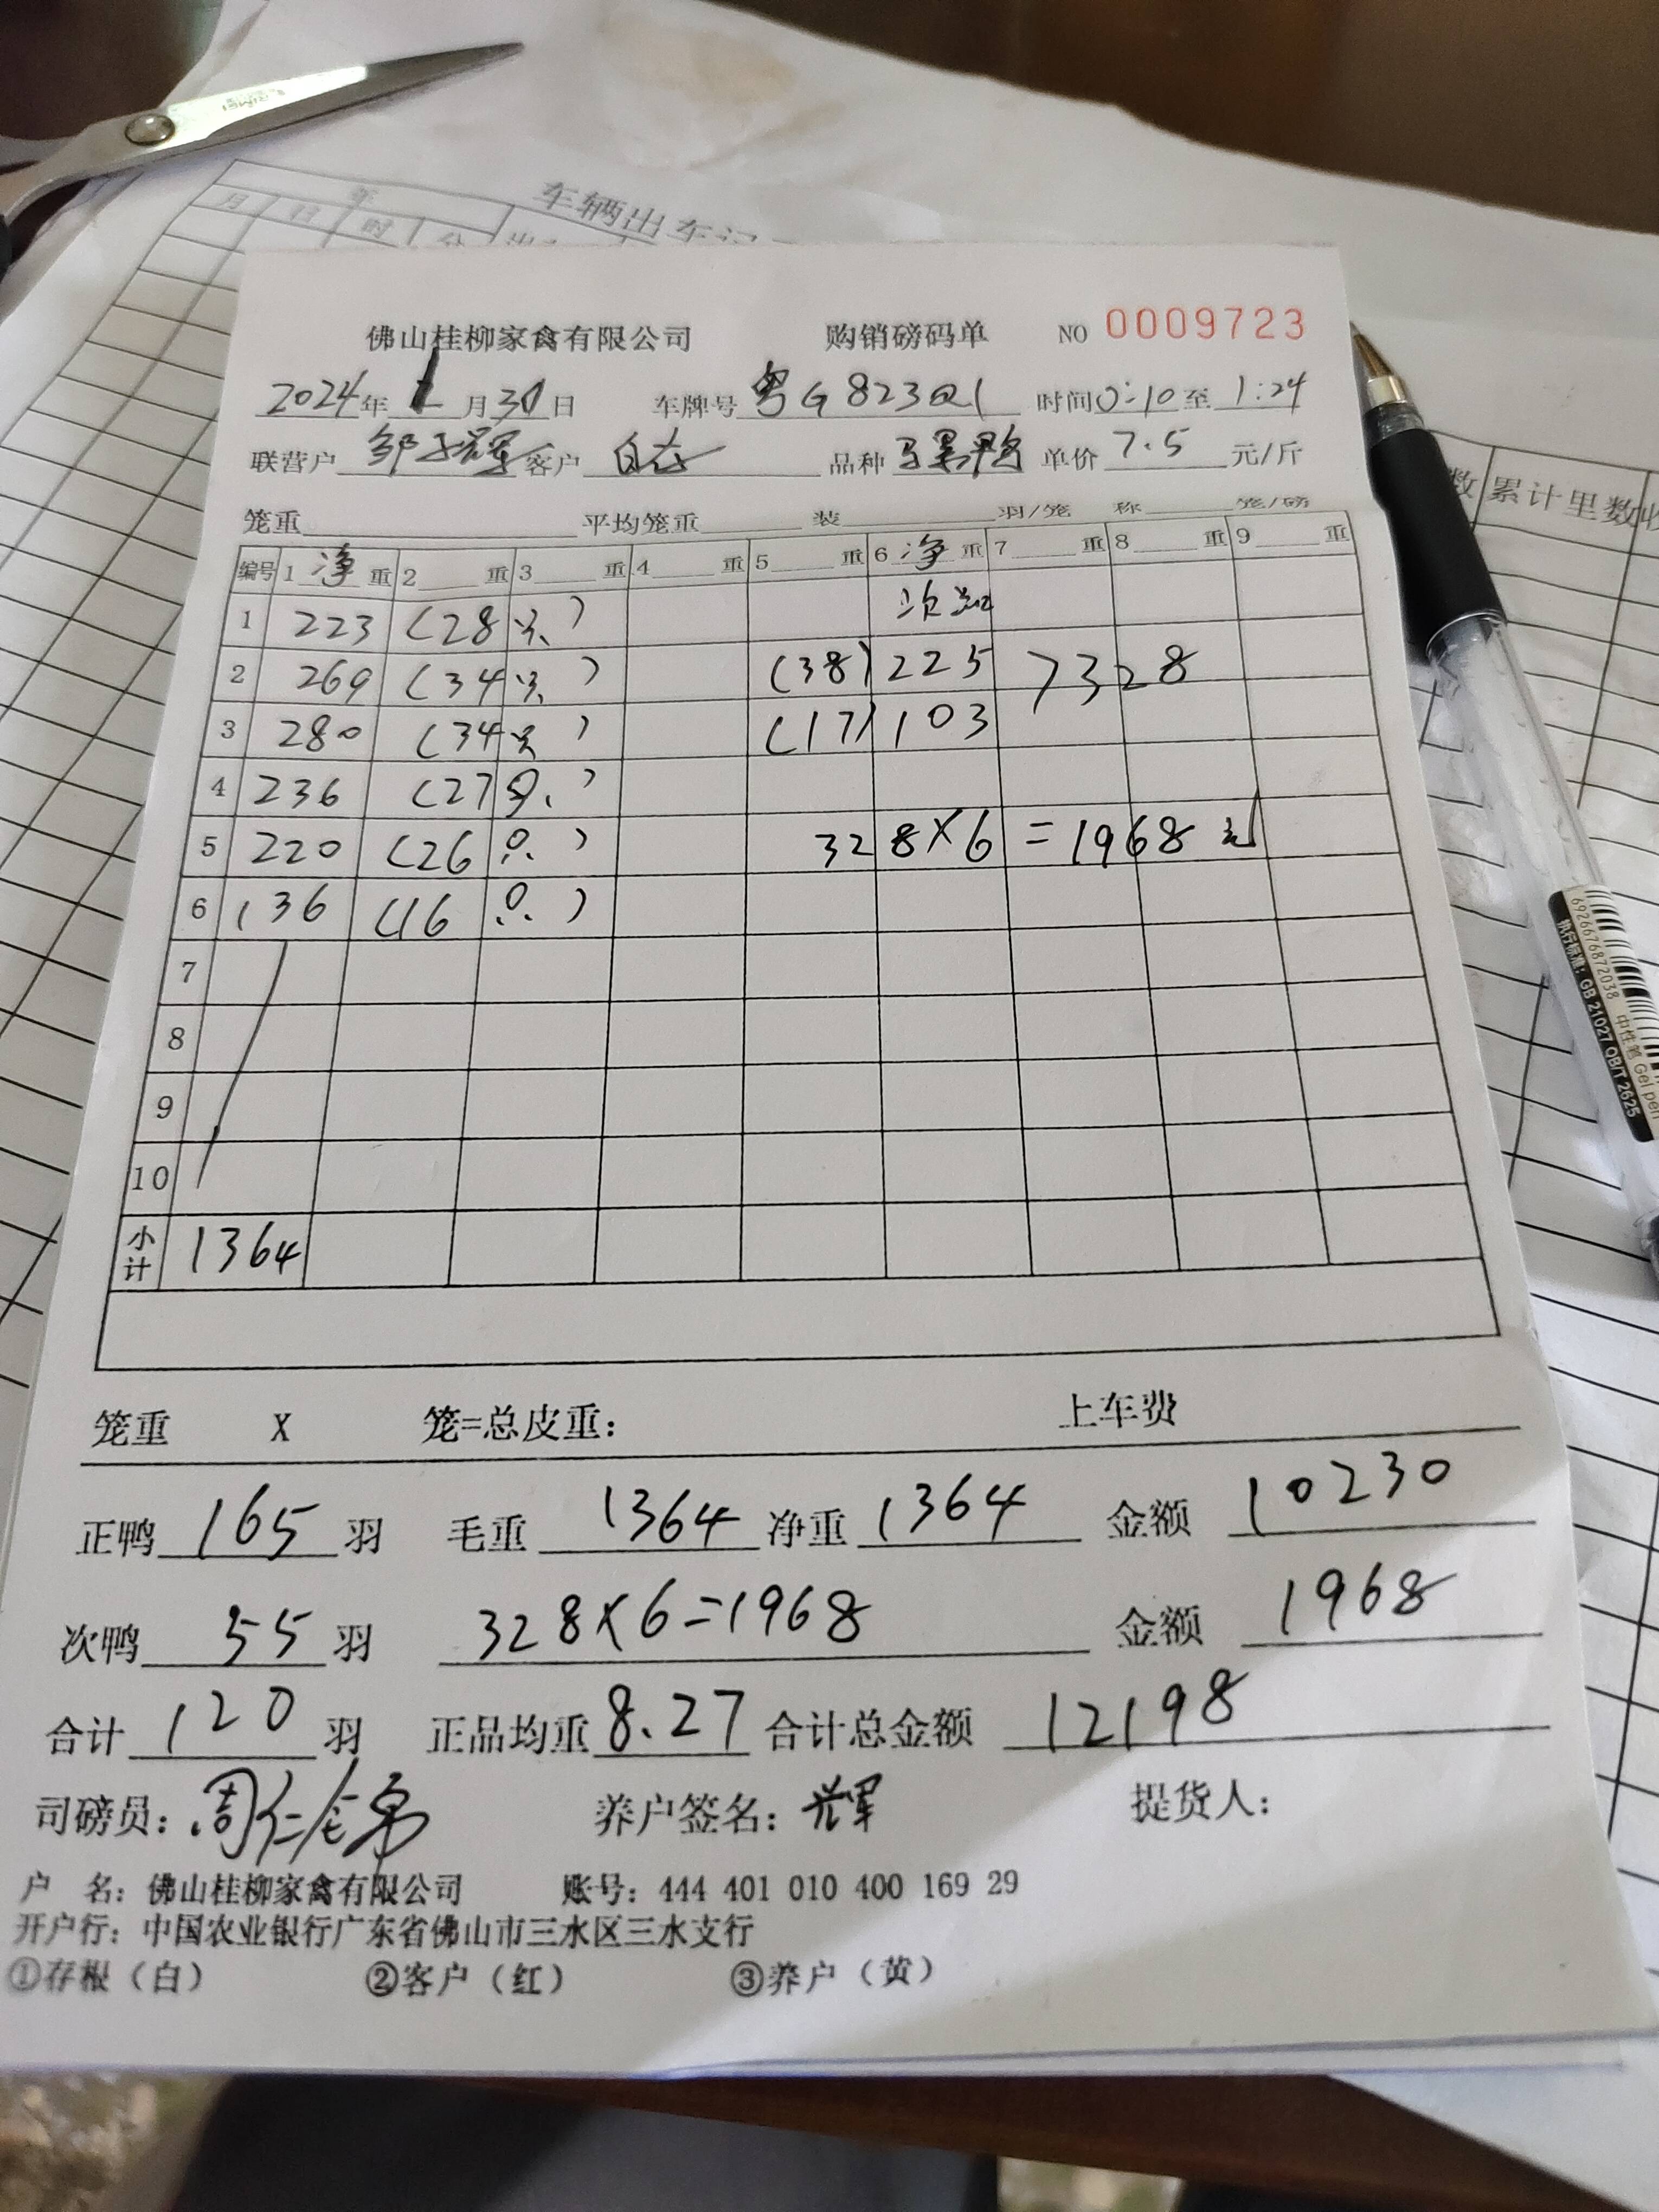 车辆出车记
年
月 日 时 分
数 累计里数
佛山桂柳家禽有限公司 购销磅码单 NO 0009723
2024年 1 月 30 日 车牌号 粤G823Q1 时间 0:10 至 1:24
联营户 客户 自存 品种 单价 7.5 元/斤
笼重 平均笼重 装 羽/笼 称 笼/磅
编号 1 净 重 2 重 3 重 4 重 5 重 6 净 重 7 重 8 重 9 重
1 223 (28只) 次
2 269 (34只) (38) 225 >328
3 280 (34只) (17) 103
4 236 (27只)
5 220 (26只) 328×6=1968元
6 136 (16只)
7
8
9
10
小计 1364
笼重 X 笼=总皮重: 上车费
正鸭 165 羽 毛重 1364 净重 1364 金额 10230
次鸭 55 羽 328×6=1968 金额 1968
合计 120 羽 正品均重 8.27 合计总金额 12198
司磅员: 养户签名: 提货人:
户 名: 佛山桂柳家禽有限公司 账号: 444 401 010 400 169 29
开户行: 中国农业银行广东省佛山市三水区三水支行
①存根（白） ②客户（红） ③养户（黄）
6926676872038 中性笔 Gel pen
执行标准: GB 21027 QB/T 2625